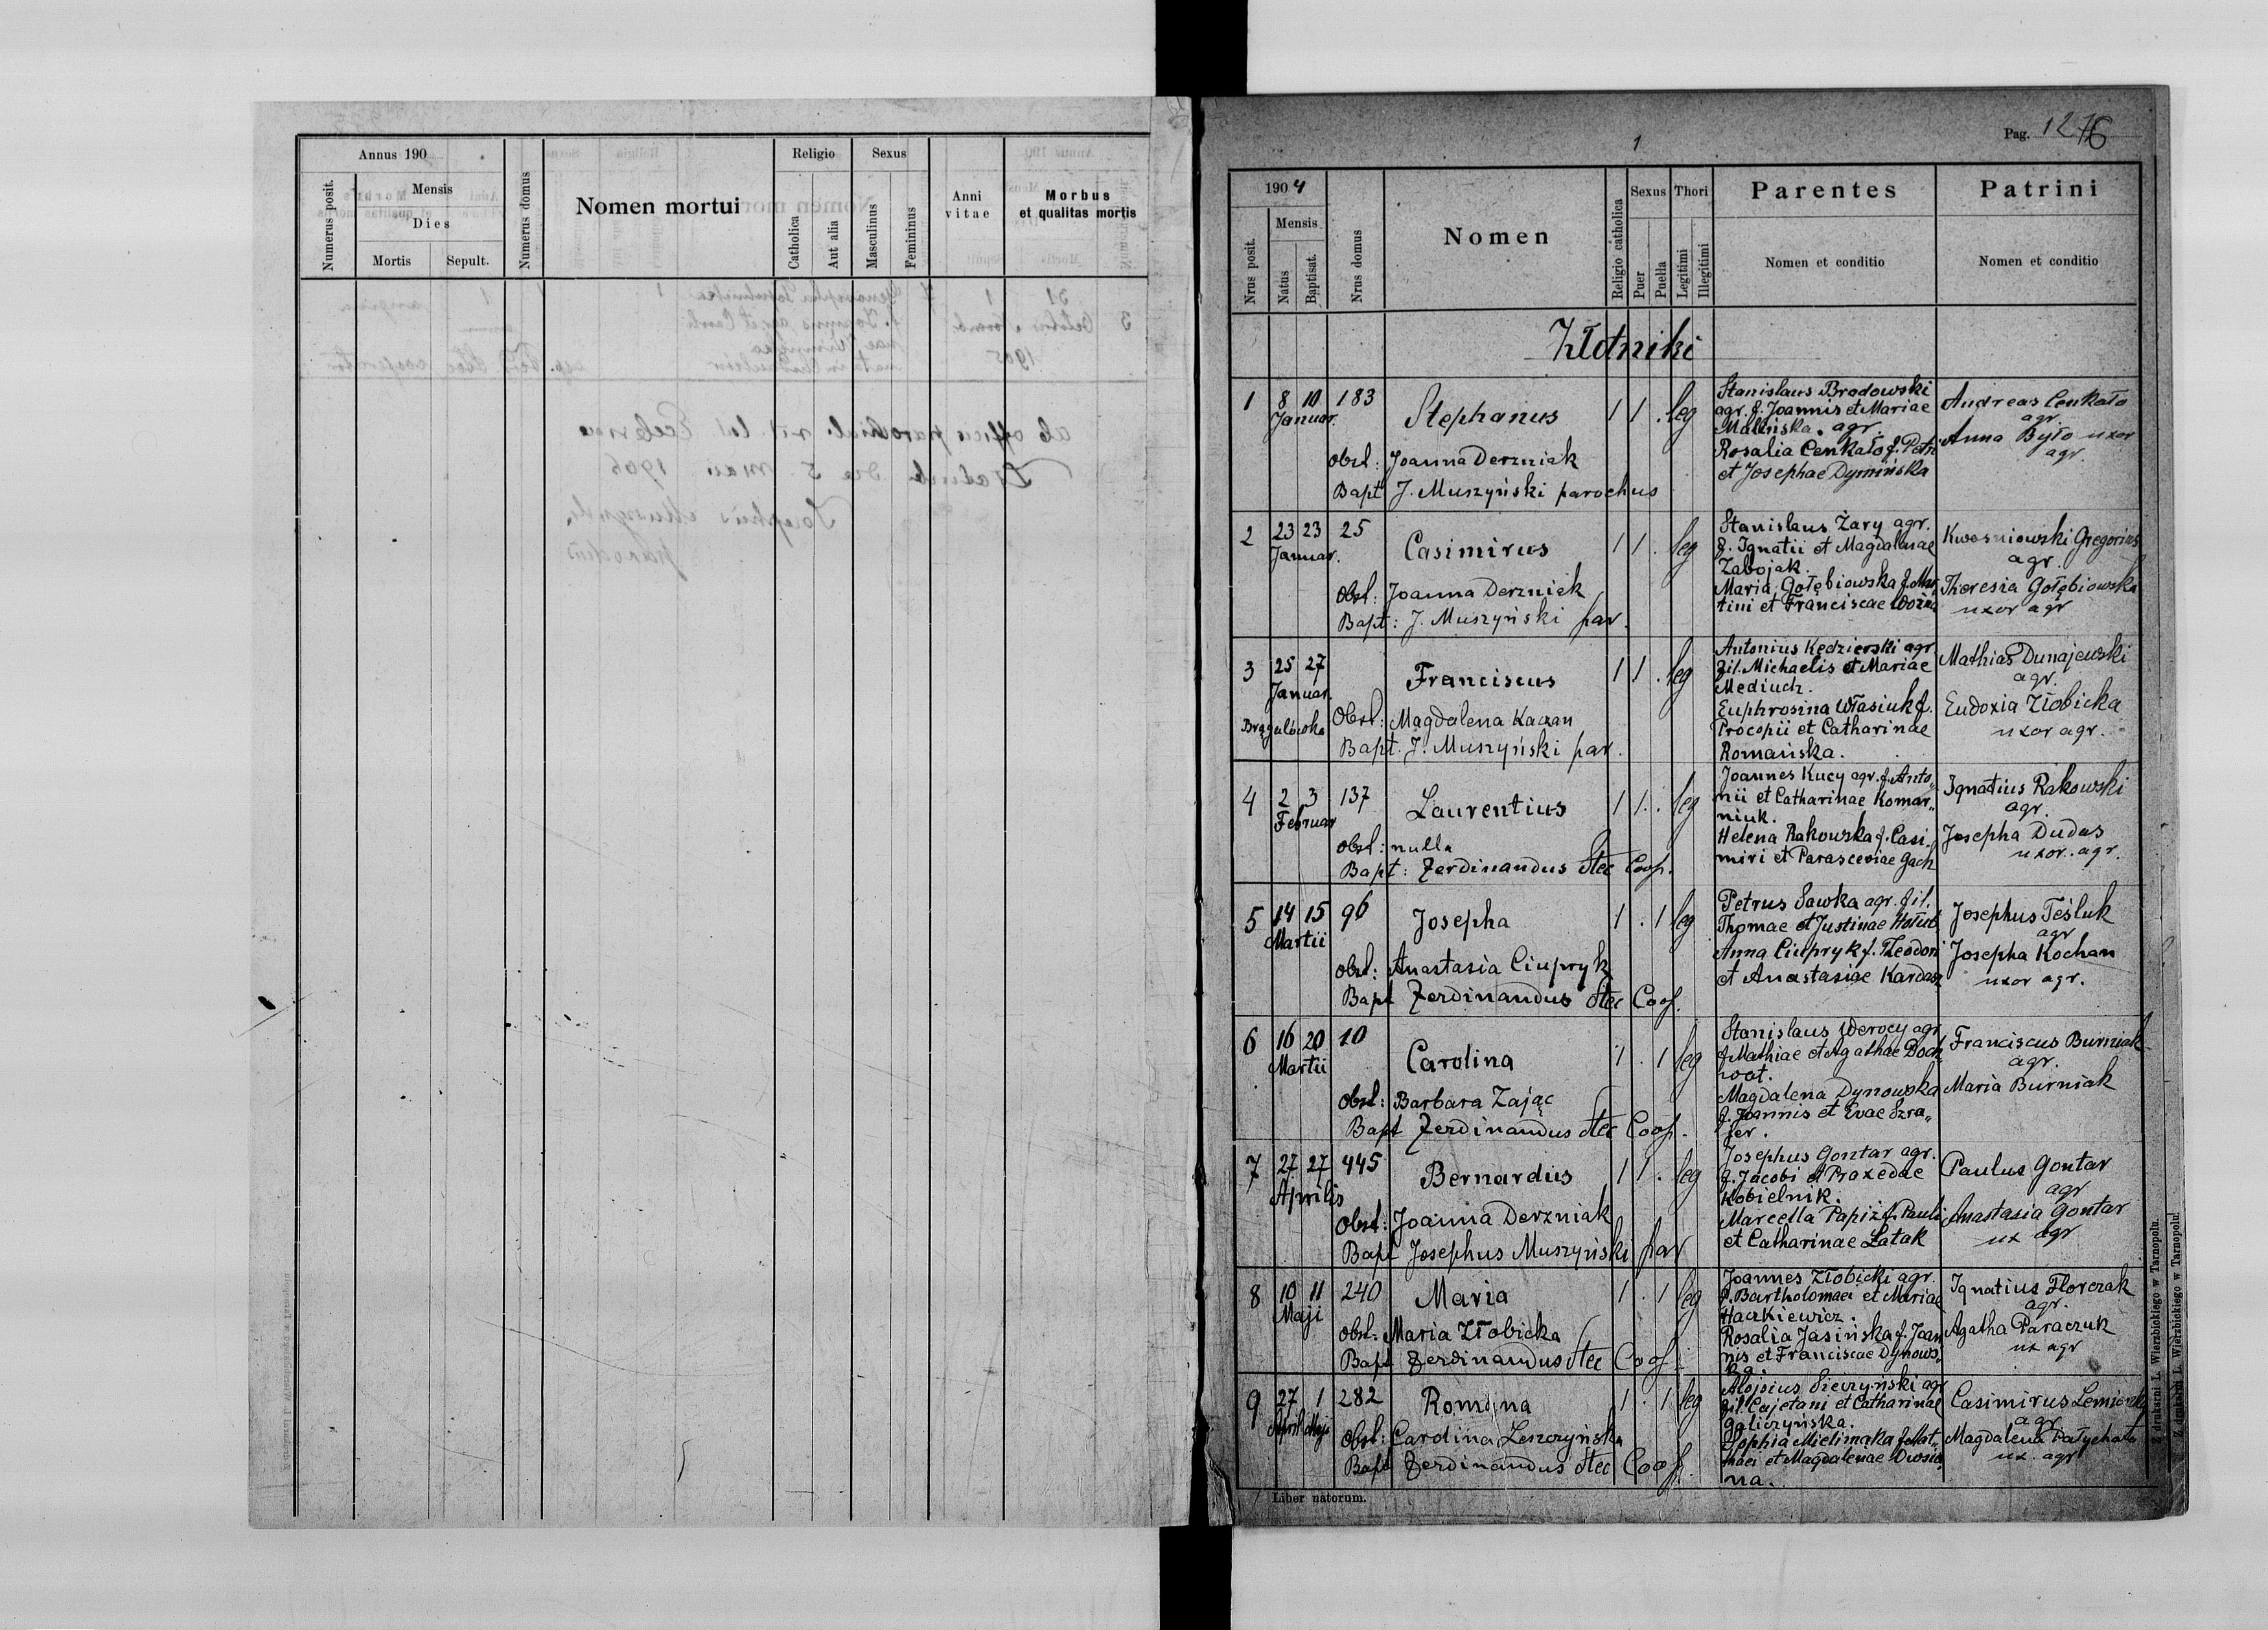 Annus 190
Numerus posit.
Mensis
Dies
Mortis
Sepult.
Numerus domus
Nomen mortui
Religio
Catholica
Aut alia
Sexus
Masculinus
Femininus
Anni
vitae
Morbus
et qualitas mortis
Pag. 1276
1
1904
Nrus posit.
Mensis
Natus
Baptisat.
Nrus domus
Nomen
Religio catholica
Sexus
Puer
Puella
Thori
Legitimi
Illegitimi
Parentes
Nomen et conditio
Patrini
Nomen et conditio
Złotniki
1 8 10 183
Januar.
Stephanus 1 1 . leg
Obst: Joanna Derzniak
Bapt J. Muszyński parochus
Stanislaus Brodowski
agr. f. Joannis et Mariae
Malińska. agr.
Rosalia Cenkało f. Petri
et Josephae Dymińska
Andreas Cenkało
agr.
Anna Było uxor
agr.
2 23 23 25
Januar.
Casimirus 1 1 . leg
Obst: Joanna Derzniak
Bapt: J. Muszyński par.
Stanislaus Żary agr.
f. Ignatii et Magdalenae
Zabojak.
Maria Gołębiowska f. Mar
tini et Franciscae
Kwosniowski Gregorius
agr.
Theresia Gołębiowska
uxor agr
3 25 27
Januar.
Franciscus 1 1 . leg
Obst: Magdalena Kaczan
Bapt. J. Muszyński par.
Antonius Kędzierski agr.
fil. Michaelis et Mariae
Mediuch.
Euphrosina Własiuk f.
Procopii et Catharinae
Romańska.
Mathias Dunajewski
agr.
Eudoxia Złobicka
uxor agr.
4 2 3 137
Februar
Laurentius 1 1 . leg
Obst: nulla
Bapt: Ferdinandus Stec Coop.
Joannes Kucy agr. f. Anto„
nii et Catharinae Komar„
niuk.
Helena Rakowska f. Casi„
miri et Parasceviae Gach
Ignatius Rakowski
agr.
Josepha Dudas
uxor. agr.
5 14 15 96
Martii
Josepha 1 . 1 leg
Obst: Anastasia Ciupryk
Bapt Ferdinandus Stec Coop.
Petrus Sawka agr. fil.
Thomae et Justinae Hołub
Anna Ciupryk f. Theodori
et Anastasiae Kardasz
Josephus Teśluk
agr
Josepha Kochan
uxor agr.
6 16 20 10
Martii
Carolina 1 . 1 leg
Obst: Barbara Zając
Bapt Ferdinandus Stec Coop.
Stanislaus Werocy agr
f. Mathiae et Agathae
Magdalena Dynowska
f. Joannis et Evae Szra„
fer.
Franciscus Burniak
agr.
Maria Burniak
7 27 27 445
Aprilis
Bernardus 1 1 . leg
Obst: Joanna Derzniak
Bapt Josephus Muszyński par
Josephus Gontar agr.
f. Jacobi et Praxedae
Kobielnik.
Marcella Papiż f. Pauli
et Catharinae Łatak
Paulus Gontar
agr
Anastasia Gontar
ux agr
8 10 11 240
Maji
Maria 1 . 1 leg
Obst: Maria Złobicka
Bapt Ferdinandus Stec Coop.
Joannes Złobicki agr.
f. Bartholomaei et Mariae
Haczkiewicz.
Rosalia Jasińska f. Joan
nis et Franciscae Dynows„
ka.
Ignatius Florczak
agr.
Agatha Paraczuk
ux agr
9 27 1 282
April Maji
Romana 1 . 1 leg
Obst: Carolina Leszczyńska
Bapt Ferdinandus Stec Coop.
Alojsius Sieczyński agr
fil. Cajetani et Catharinae
Galiczyńska.
Sophia f. Mat„
thaei et Magdalenae
na.
Casimirus
agr
Magdalena
ux. agr
Liber natorum.
Z drukarni L. Wierzbickiego w Tarnopolu.
Z drukarni L. Wierzbickiego w Tarnopolu.